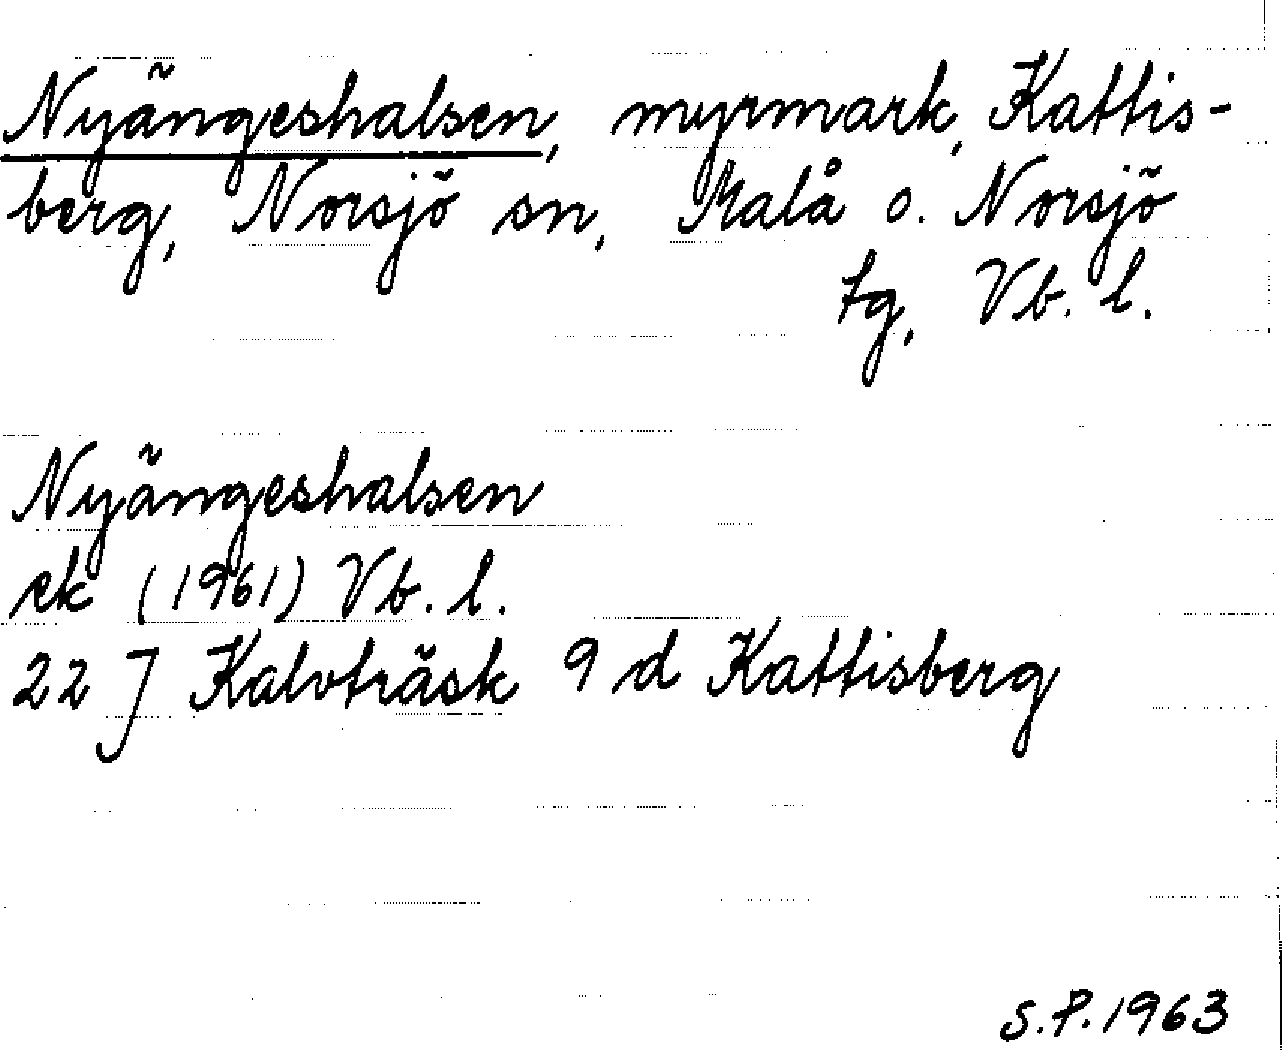 Nyängeshalsen, myrmark, Kattis-
berg, Norsjö sn, Malå o. Norsjö
tg, Vb. l.
Nyängeshalsen
ek (1961) Vb. l.
22 J Kalvträsk 9 d Kattisberg
S.P. 1963